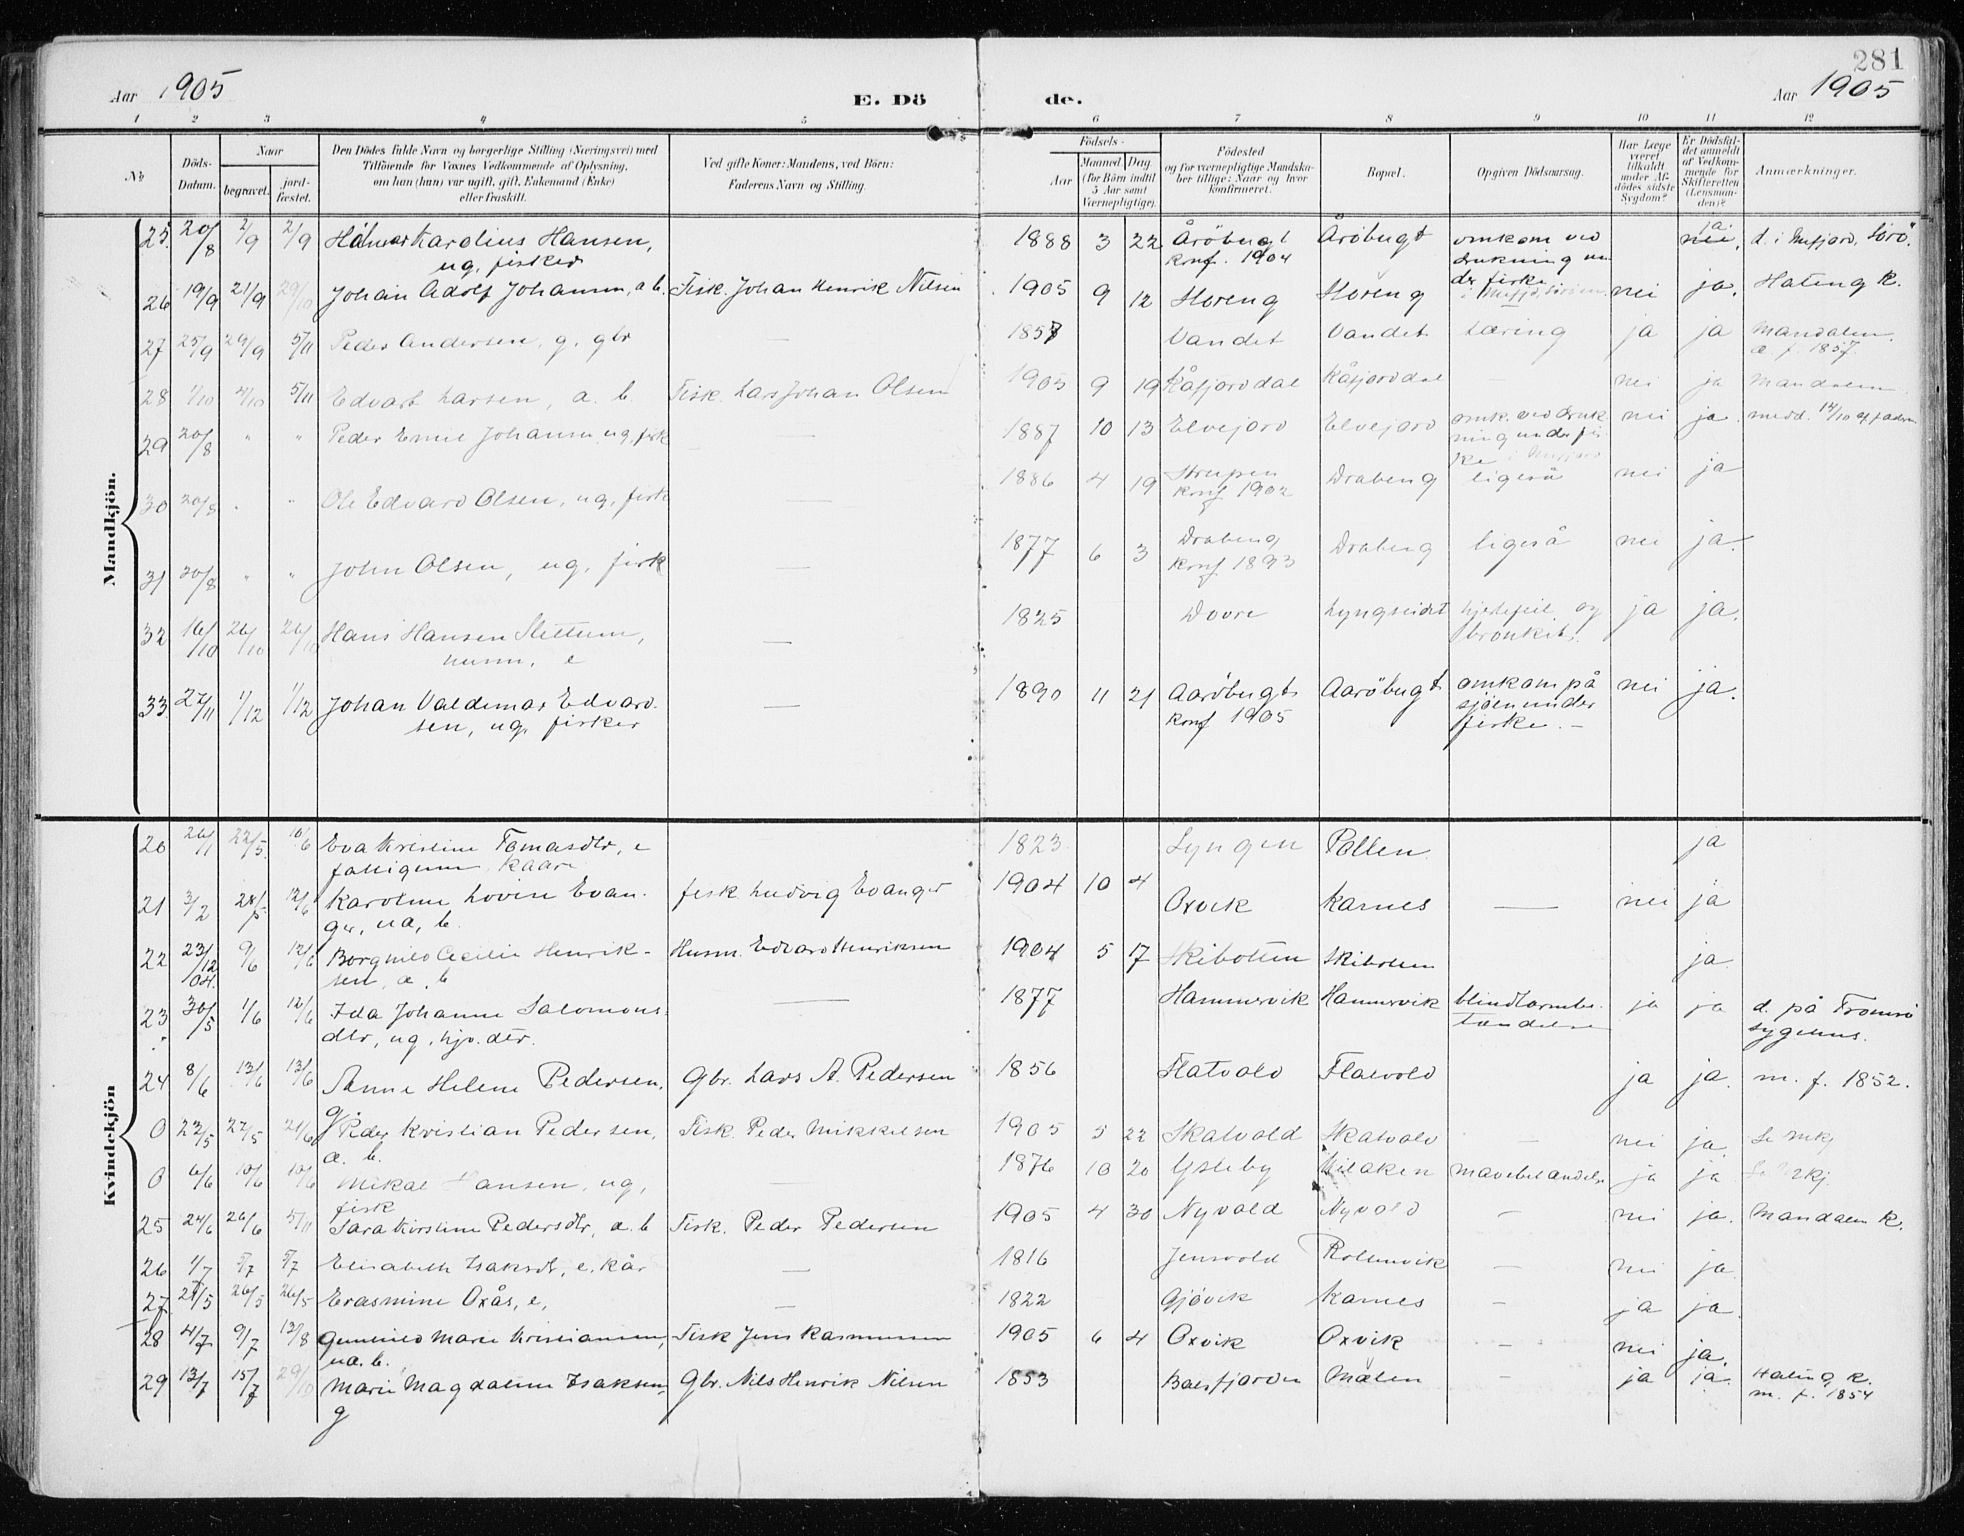 281
Aar 1905
E. Dö
de.
Aar 1905
1 2 3 4 5 6 7 8 9 10 11 12
No
Döds-
Datum.
Naar
begravet.
jord-
fæstet.
Den Dödes fulde Navn og borgerlige Stilling (Næringsvei) med
Tilföiende for Voxnes Vedkommende af Oplysning,
om han (hun) var ugift, gift, Enkemand (Enke)
eller fraskilt.
Ved gifte Koner: Mandens, ved Börn:
Faderens Navn og Stilling.
Födsels-
Aar
Maaned
Dag
(for Börn indtil
5 Aar samt
Værnepligtige).
Födested
og for værnepligtige Mandska-
ber tillige: Naar og hvor
konfirmeret.
Bopæl.
Opgiven Dödsaarsag.
Har Læge
været
tilkaldt
under Af-
dödes sidste
Sygdom?
Er Dödsfal-
det anmeldt
af Vedkom-
mende for
Skifteretten
(Lensman-
den)?
Anmærkninger.
Mandkjön.
25. 20/8 2/9 2/9 Karolius Hansen, 1888 3 22 Åröbugt Åröbugt omkom ved ja
ug. fisker konf. 1904 drukning un
der fiske
26 19/9 21/9 29/10 Johan Adolf Johansen, a. b. Fisk. Johan Henrik Nilsen 1905 9 12 Storeng Storeng nei ja. Hateng k.
27 25/9 29/9 5/11 Peder Andersen, g. gbr — 1857 Vandet Vandet tæring ja ja Mandalen.
f. 1857.
28 1/10 4/10 5/11 Edvart Larsen, a. b. Fisk. Lars Johan Olsen 1905 9 19 Kåfjorddal Kåfjorddal — nei ja Mandalen
29 20/8 " " Peder Emil Johansen, ug. fisk — 1887 10 13 Elvejord Elvejord omk. ved druk nei ja. medd. 14/10 af faderen
ning under fis-
ke
30 20/8 " " Ole Edvard Olsen, ug. fisk — 1886 4 19 Strupen Drabeng ligeså nei ja
konf 1902
31 20/8 " " John Olsen, ug. fisk — 1877 6 3 Drabeng Drabeng ligeså nei ja.
konf 1893
32 16/10 26/10 26/10 Hans Hansen Slettum, — 1825 Dovre Lyngseidet hjertefeil og ja ja.
husm. e bronkit.
33 27/11 1/12 1/12 Johan Valdemar Edvard- — 1890 11 21 Aaröbugt Aaröbugt omkom på nei ja.
sen, ug. fisker konf 1905 sjöen under
fiske. —
Kvindekjön
20 26/1 22/5. 10/6 Eva Kristine Tomasdtr, e 1823 Lyngen Pollen ja
21 3/2 12/6 Karoline Lovise Evan- fisk Ludvig Evanger 1904 10 4 Oxvik Karnes — nei ja
ger, ua, b.
22 23/12 04. 9/6 12/6 Borghild Cecilie Henrik- Husm. Edvard Henriksen 1904 5 17 Skibotten Skibotten ja
sen, a. b
23 30/5 1/6 12/6 Ida Johanne Salomons- — 1877 Hammervik Hammervik blindtarmbe- ja ja d. på Tromsö
dtr, ug, hjv. dtr. tændelse sygehus.
24 8/6 13/6 13/6 Anne Helene Pedersen, Gbr. Lars A. Pedersen 1856 Flatvold Flatvold ja ja. m. f. 1852.
g
0 22/5 27/5 21/6 Peder Kristian Pedersen, Fisk. Peder Mikkelsen 1905 5 22 Skatvold Skatvold — nei ja. Se mkj
a. b.
0 6/6 10/6 10/6 Mikal Hansen, ug, — 1876 10 20 mavebetændelse ja ja Se mkj.
fisk
25 24/6 26/6 5/11 Sara Kirstine Pedersdtr, a. b Fisk. Peder Pedersen 1905 4 30 Nyvold Nyvold — nei ja. Mandalen k.
26 1/7 5/7 5/7 Elisabeth Isaksdtr, e. kår — 1816 Jensvold Rottenvik — nei ja
27 21/5 26/5 26/5 Erasmine Oxås, e, — 1822 Gjövik Karnes — ja ja.
28 4/7 9/7 13/8 Gunhild Marie Kristiansen, Fisk Jens Rasmussen 1905 6 4 Oxvik Oxvik — nei ja.
ua. b.
29 13/7 15/7 29/10 Marie Magdalene Isaksen, Gbr. Nils Henrik Nilsen 1853 Balsfjorden Mælen ja ja. Hateng k.
g m. f. 1854